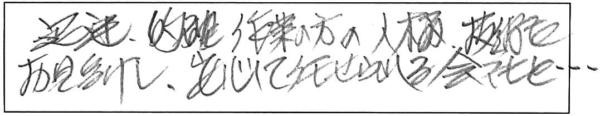 迅速、的確 作業の方の人柄 技術を
お見受けし、安心して任せられる会社と…